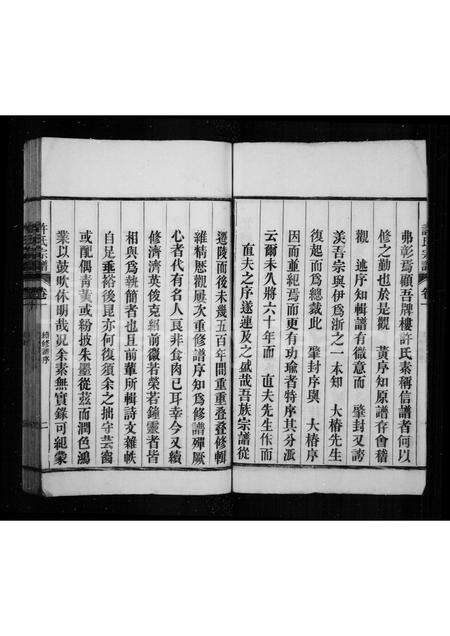 許氏宗譜
卷一
弗彰焉顧吾牌樓許氏素稱信譜者何以
修之勤也於是觀　黃序知原譜存會稽
觀　述序知輯譜有微意而　肇封又謗
羡吾宗與伊爲浙之一本知　大椿先生
復起而爲總裁此　肇封序與　大椿序
因而並紀焉而更有功瑜者特序其分派
云爾未久將六十年而　直夫先生作而
直夫之序遂連及之盛哉吾族宗譜從
遷陵而後未幾五百年間重重疊疊修輯
維精愿觀屢次重修譜序知爲修譜殫厥
心者代有名人良非食肉已耳幸今又續
修濟濟英俊克紹前徽若榮若鐘靈者皆
相與爲執簡者也且前輩所輯詩文雜帙
自足垂裕後昆亦何復須余之拙守芸窗
或配偶青黃或紛披朱墨從茲而潤色鴻
業以鼓吹休明哉况余素無實錄可紀蒙
許氏宗譜
卷一
續修譜序
二